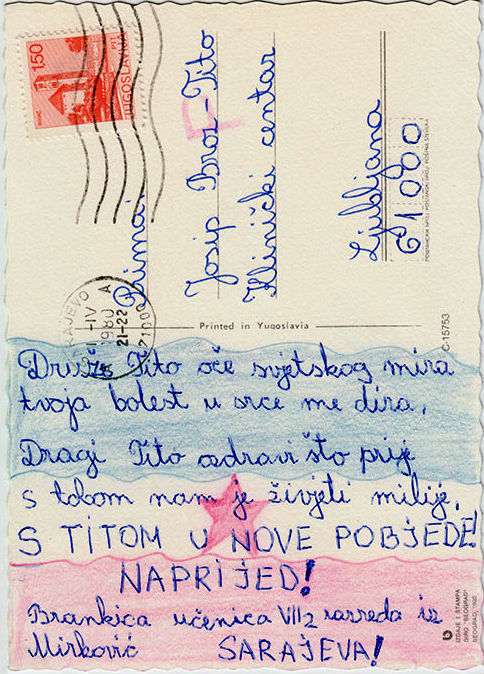 1.50
PTT
JUGOSLAVIJA
SARAJEVO
-IV
1980 A
21-22
71000
Prima:
Josip Broz-Tito
Klinički centar
Ljubljana
61000
Printed in Yugoslavia
C-15753
Druže Tito oče svjetskog mira
tvoja bolest u srce me dira,
Dragi Tito ozdravi što prije
s tobom nam je živjeti milije,
S TITOM U NOVE POBJEDE!
NAPRIJED!
Brankica učenica VII2 razreda iz
Mirković SARAJEVA!
IZDAJE I ŠTAMPA
GIRO "BEOGRAD"
BEOGRAD, 1980